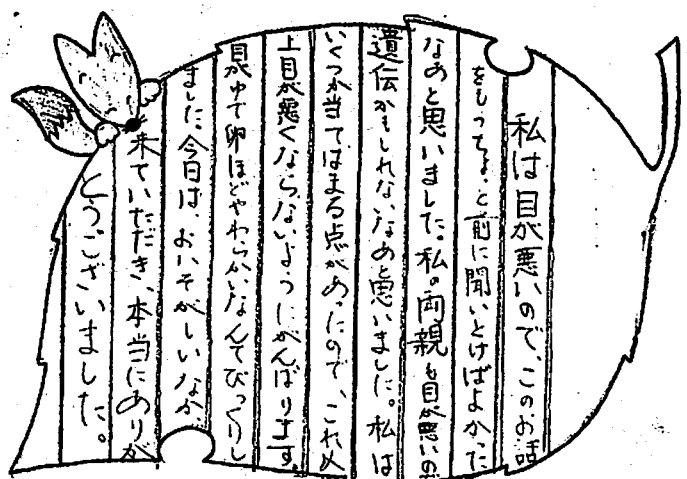 私は目が悪いので、このお話
をもうちょっと前に聞いとけばよかった
なあと思いました。私の両親も目が悪いの
遺伝かもしれないなあと思いました。私は
いくつか当てはまる点があったので、これ以
上目が悪くならないようにがんばります。
目がゆで卵ほどやわらかいなんてびっくりし
ました。今日は、おいそがしいなか
来ていただき、本当にありが
とうございました。